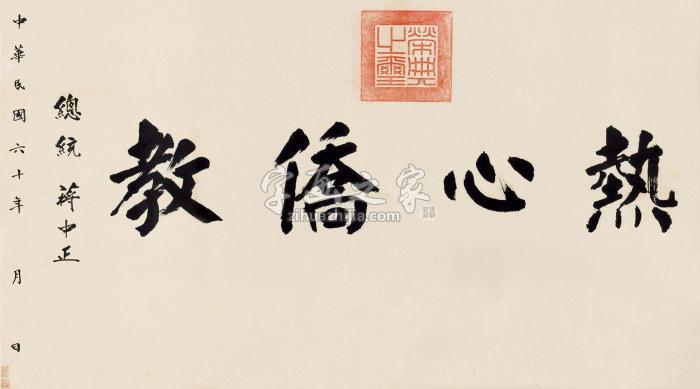 熱心僑教
榮典之璽
總統 蔣中正
中華民國六十年 月 日
字画之家
zihuazhijia.com